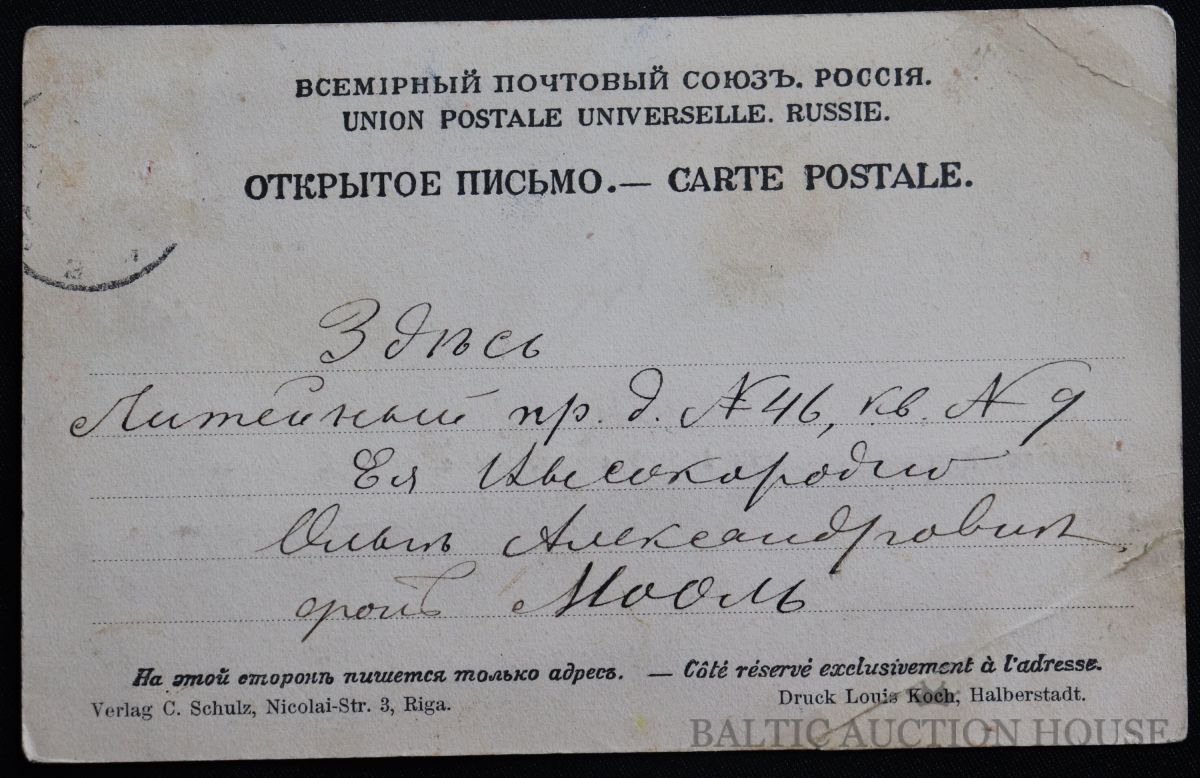 ВСЕМІРНЫЙ ПОЧТОВЫЙ СОЮЗЪ. РОССІЯ.
UNION POSTALE UNIVERSELLE. RUSSIE.
ОТКРЫТОЕ ПИСЬМО.— CARTE POSTALE.
Здѣсь
Литейный пр. д. № 46, кв. № 9
Ея Высокородію
Ольгѣ Александровнѣ
фонъ Мооль
На этой сторонѣ пишется только адресъ. — Côté réservé exclusivement à l'adresse.
Verlag C. Schulz, Nicolai-Str. 3, Riga.
Druck Louis Koch, Halberstadt.
BALTIC AUCTION HOUSE